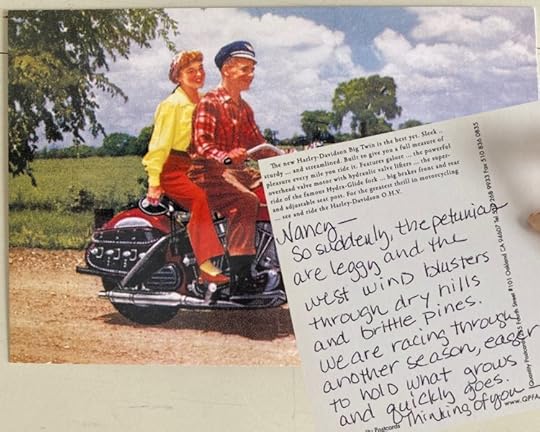 The new Harley-Davidson Big Twin is the best yet. Sleek ..
sturdy ... and streamlined. Built to give you a full measure of
pleasure every mile you ride it. Features galore ... the powerful
overhead valve motor with hydraulic valve lifters ... the super-
ride of the famous Hydra-Glide fork ... big brakes front and rear
and adjustable seat post. For the greatest thrill in motorcycling
... see and ride the Harley-Davidson O.H.V.
Nancy—
So suddenly, the petunias
are leggy and the
west wind blusters
through dry hills
and brittle pines.
We are racing through
another season, eager
to hold what grows
and quickly goes.
Thinking of you—
Quality Postcards
Street #101 Oakland CA 94607
268 9933 Fax 510 836 0835
Postcards
www.QPFA